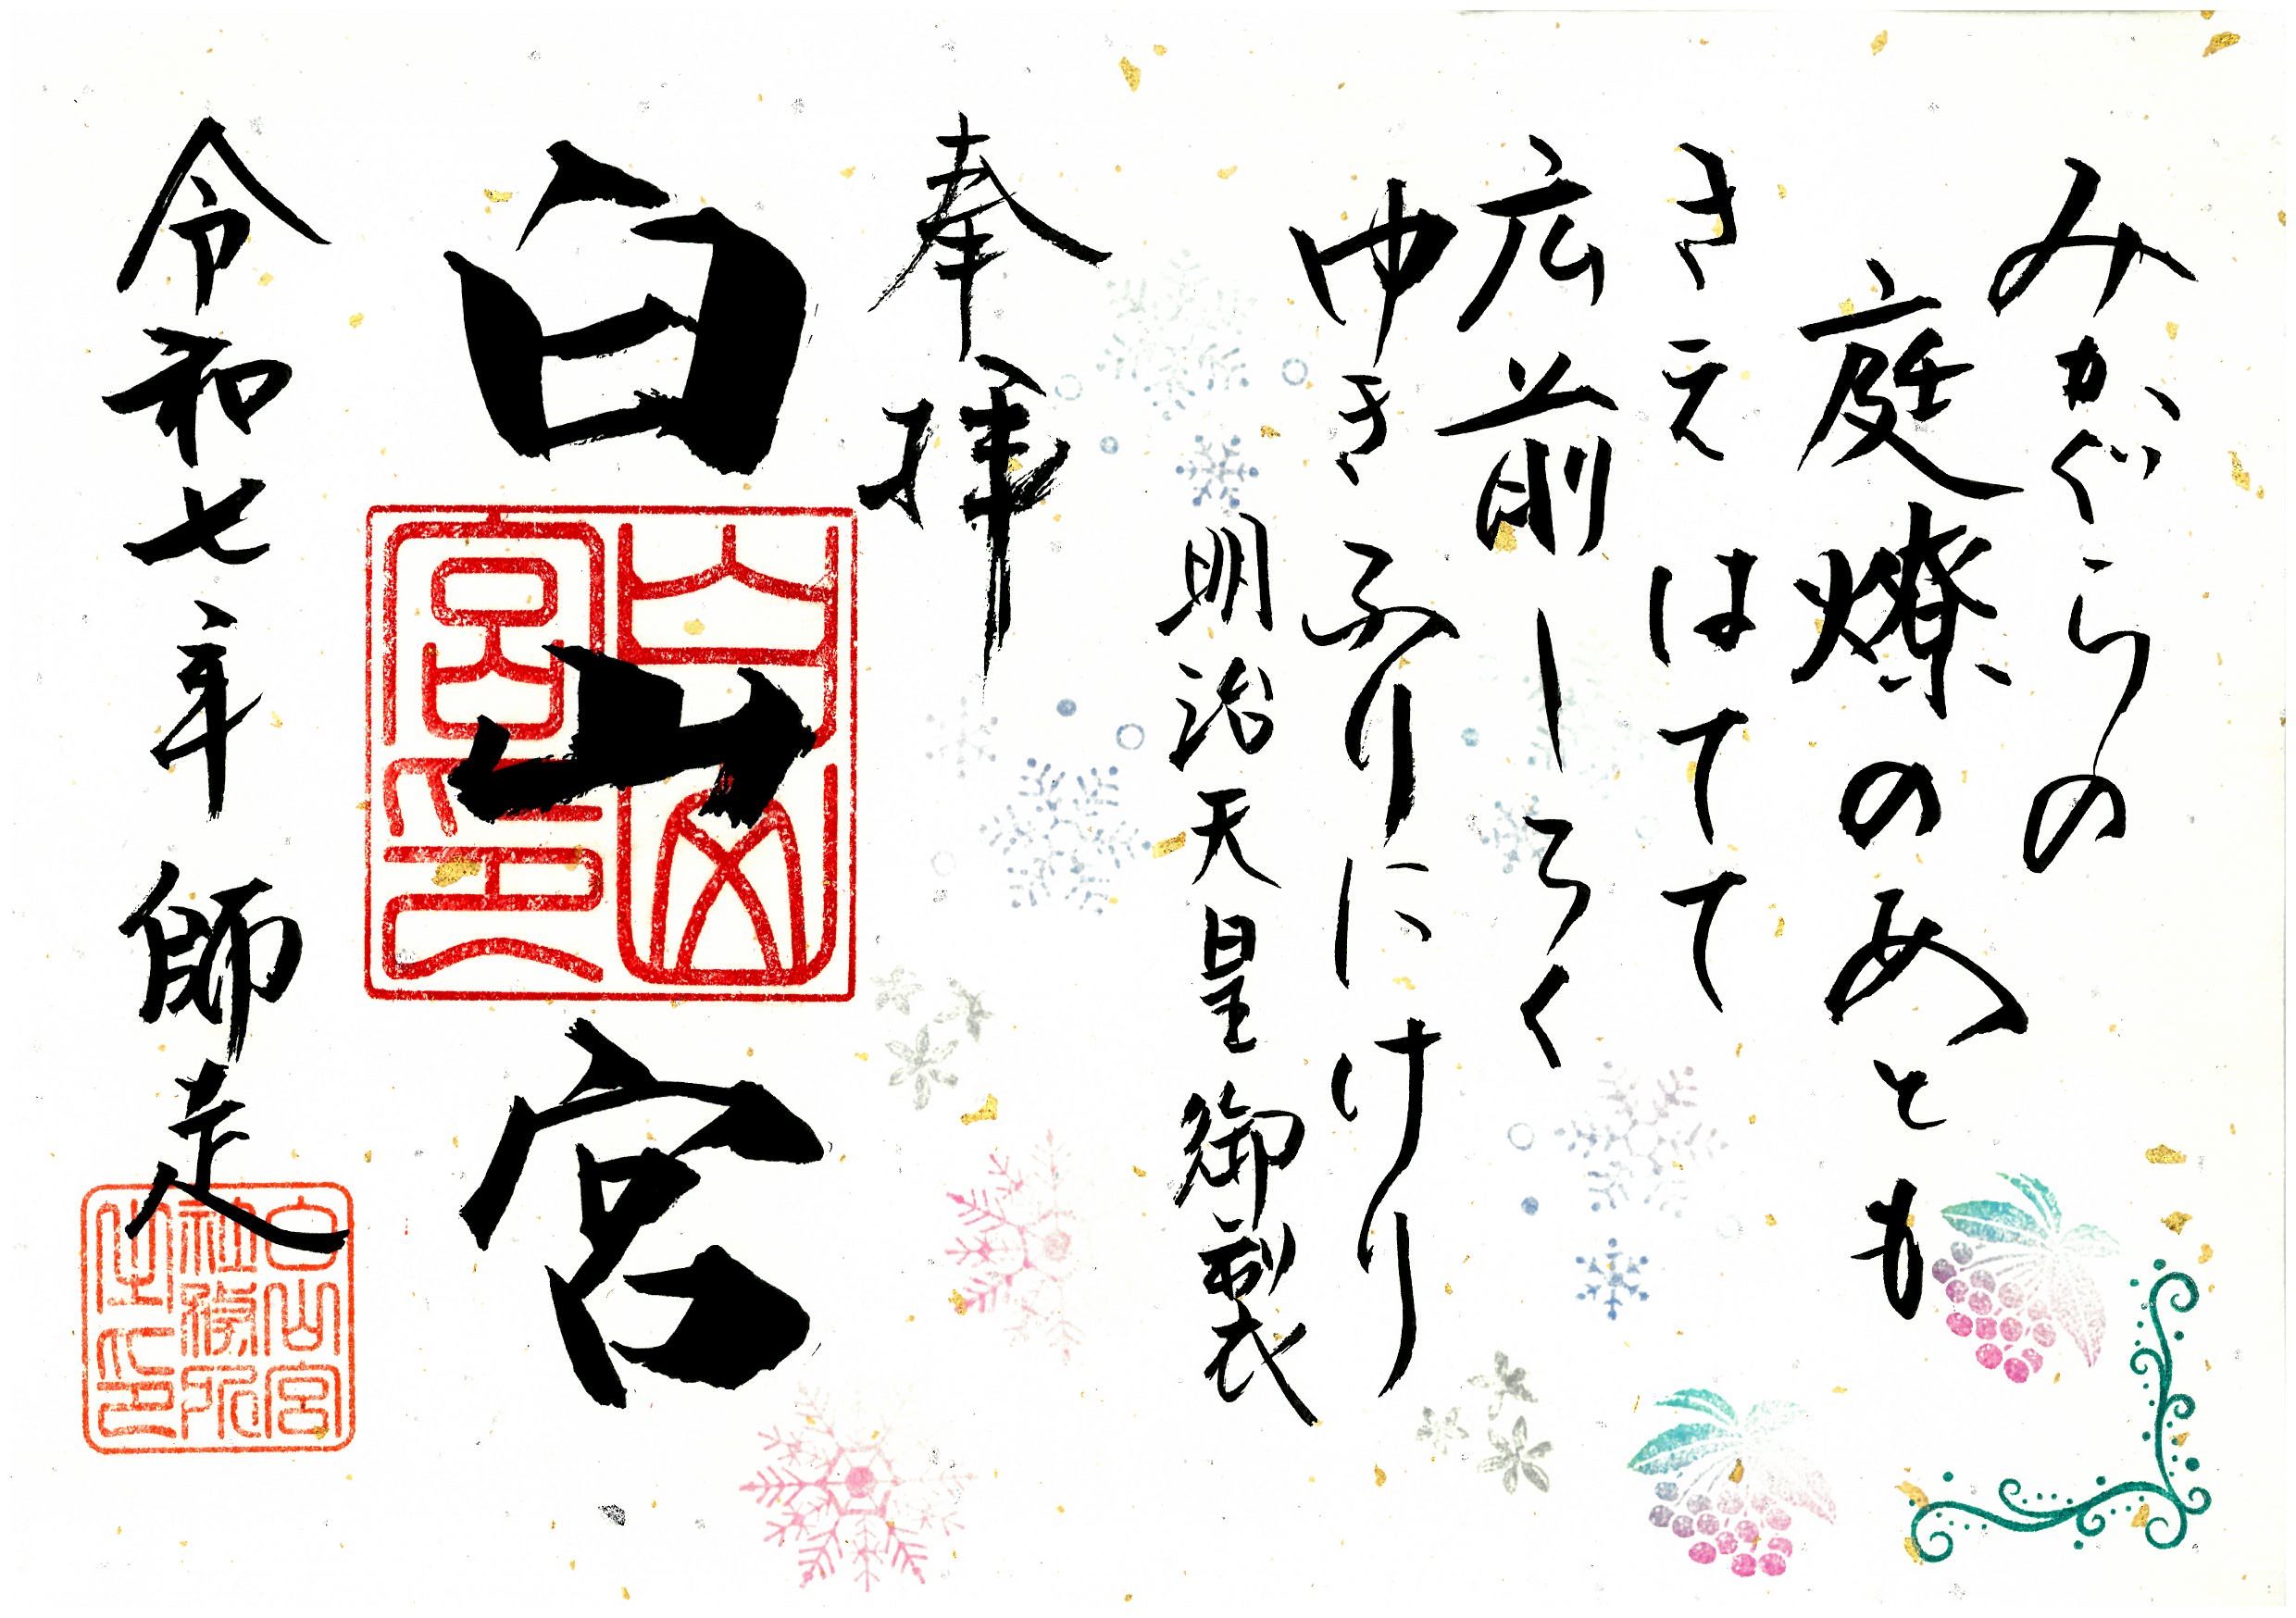 みかぐらの
庭燎のあとも
さえはてて
広前しろく
ゆきふりにけり
明治天皇御製
奉拝
白山宮
白山宮印
令和七年 師走
白山宮
社務所
之印